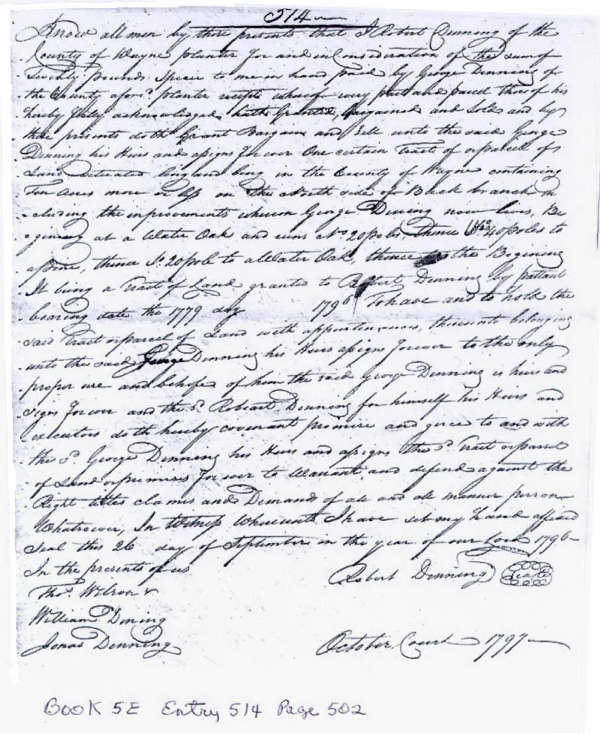 514
Know all men by these presents that I Robert Denning of the
County of Wayne planter for and in Consideration of the sum of
Seventy pounds Specie to me in hand paid by George Denning of
the County afors.d planter receipt whereof every part and parcel thereof his
hereby fully acknowledged hath Granted, Bargained and Sold and by
these presents doth Grant Bargain and Sell unto the said George
Denning his Heirs and asigns forever One certain tract or parcel of
Land situated lying and being in the County of Wayne containing
Ten Acres more or less on the North side of Black branch In
cluding the improvements whereon George Dening now lives, Be
gining at a Water Oak and runs No 20 poles, thence Wt 40 poles to
a pine, thence So 20 pole to a Water Oak, thence to the Begining
It being a Tract of Land granted to Robert Denning by pattent
bearing date the 1779 day 1796 To have and to hold the
said Tract or parcel of Land with appurtenances, thereunto belonging
unto the said George Denning his Heirs asigns forever to the only
proper use and behofe of him the said George Denning is heirs and
signs forever and the sd. Robert Denning for himself his Heirs and
executors doth hereby covenant promise and gree to and with
the sd George Denning his Heirs and assigns the sd Tract or parcel
of Land or premises forever to Warrant and defend against the
Right titles claimes and Demand of all and all manner person
Whatsoever, In Witness Whereunto I have set my Hand affixed
Seal this 26 day of September in the year of our Lord 1796
In the presents of us
Robert Denning Seal
Thos Wilson &
William Dining
Jonas Denning
October Court 1797
Book 5E Entry 514 Page 502